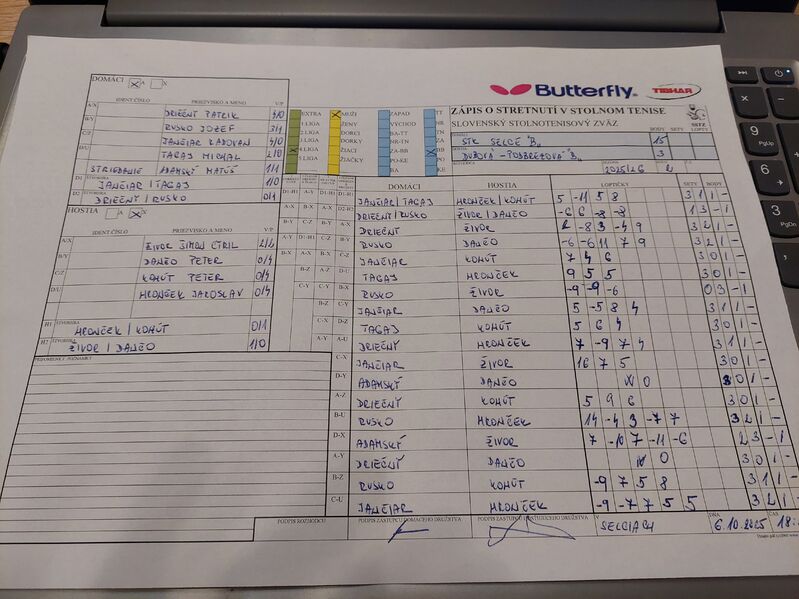 Butterfly
TIBHAR
ZÁPIS O STRETNUTÍ V STOLNOM TENISE
SLOVENSKÝ STOLNOTENISOVÝ ZVÄZ
SSTZ
BODY SETY LOPTY
STK SELCE "B" 15
DUBOVÁ - PODBREZOVÁ "B" 3
2025/26 2
DOMÁCI A X
IDENT.ČÍSLO PRIEZVISKO A MENO V/P
A/X DRIEČNÝ PATRIK 4/0
B/Y RUSKO JOZEF 3/1
C/Z JANČIAR RADOVAN 4/0
D/U TAGAJ MICHAL 2/0
STRIEDANIE ADAMSKÝ MATÚŠ 1/1
D1 JANČIAR / TAGAJ 1/0
D2 DRIEČNÝ / RUSKO 0/1
HOSTIA A X
IDENT.ČÍSLO PRIEZVISKO A MENO V/P
A/X ŽIVOR ŠIMON CTRIL 2/2
B/Y DANČO PETER 0/4
C/Z KOHÚT PETER 0/4
D/U HRONČEK JAROSLAV 0/4
H1 ŠTVORHRA HRONČEK / KOHÚT 0/1
H2 ŠTVORHRA ŽIVOR / DANČO 1/0
PRIPOMIENKY POZNÁMKY
EXTRA MUŽI ZÁPAD TT
1 LIGA ŽENY VÝCHOD NR
2 LIGA DORCI BA-TT TN
3 LIGA DORKY NR-TN ZA
4 LIGA ŽIACI ZA-BB BB
5 LIGA ŽIAČKY PO-KE PO
BA KE
DOMÁCI HOSTIA LOPTIČKY SETY BODY
D1-H1 JANČIAR / TAGAJ HRONČEK / KOHÚT 5 -11 5 8 3 1 1 -
D2-H2 DRIEČNÝ / RUSKO ŽIVOR / DANČO -6 6 -8 -8 1 3 - 1
DRIEČNÝ ŽIVOR 2 -8 3 -4 9 3 2 1 -
RUSKO DANČO -6 -6 11 7 9 3 2 1 -
JANČIAR KOHÚT 7 4 6 3 0 1 -
D-U TAGAJ HRONČEK 9 5 5 3 0 1 -
B-X RUSKO ŽIVOR -9 -9 -6 0 3 - 1
JANČIAR DANČO 5 -5 8 4 3 1 1 -
TAGAJ KOHÚT 5 6 4 3 0 1 -
A-U DRIEČNÝ HRONČEK 7 -9 7 4 3 1 1 -
C-X JANČIAR ŽIVOR 16 7 5 3 0 1 -
D-Y ADAMSKÝ DANČO W O 3 0 1 -
A-Z DRIEČNÝ KOHÚT 5 9 6 3 0 1 -
B-U RUSKO HRONČEK 14 -4 3 -7 7 3 2 1 -
D-X ADAMSKÝ ŽIVOR 7 -10 7 -11 -6 2 3 - 1
A-Y DRIEČNÝ DANČO W O 3 0 1 -
B-Z RUSKO KOHÚT -9 7 5 8 3 1 1 -
C-U JANČIAR HRONČEK -9 -7 7 5 5 3 2 1 -
PODPIS ROZHODCU PODPIS ZÁSTUPCU DOMÁCEHO DRUŽSTVA PODPIS ZÁSTUPCU HOSŤUJÚCEHO DRUŽSTVA V SELCIACH DŇA 6.10.2025 ČAS 18: